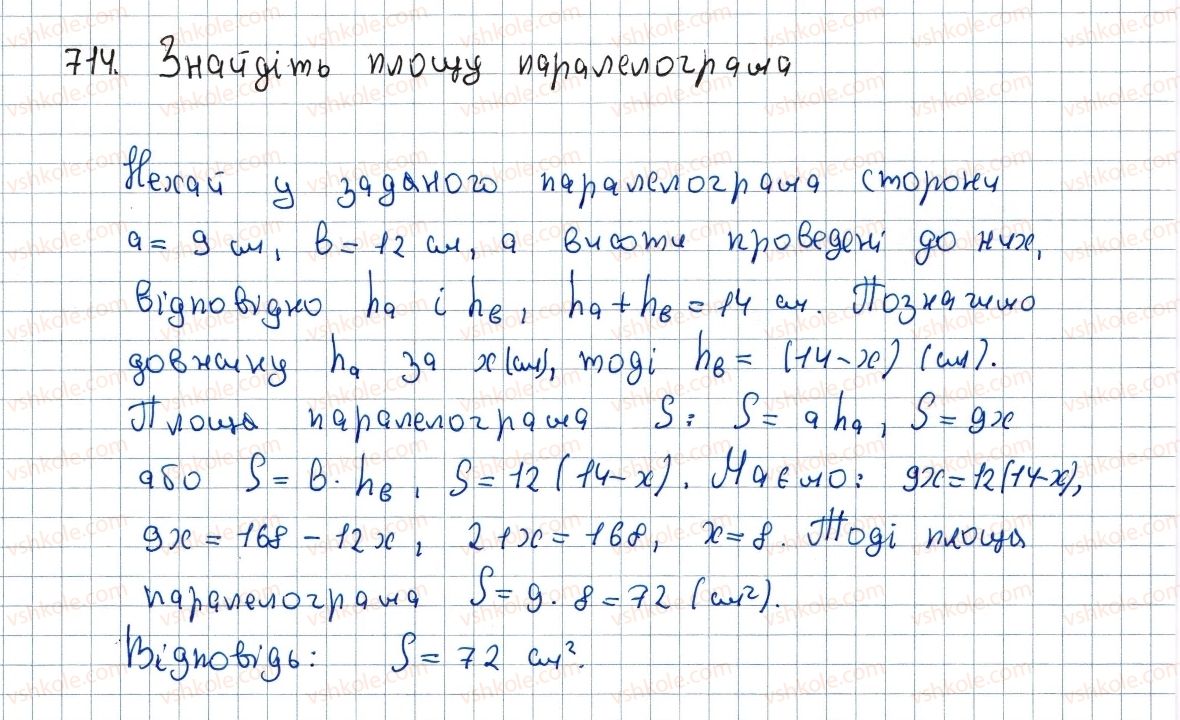 714. Знайдіть площу паралелограма
Нехай у заданого паралелограма сторони
a = 9 см, b = 12 см, а висоти проведені до них,
відповідно hₐ і h_b, hₐ + h_b = 14 см. Позначимо
довжину hₐ за x (см), тоді h_b = (14 - x) (см).
Площа паралелограма S: S = a hₐ, S = 9x
або S = b · h_b, S = 12(14 - x). Маємо: 9x = 12(14 - x),
9x = 168 - 12x, 21x = 168, x = 8. Тоді площа
паралелограма S = 9 · 8 = 72 (см²).
Відповідь: S = 72 см².
vshkole.com